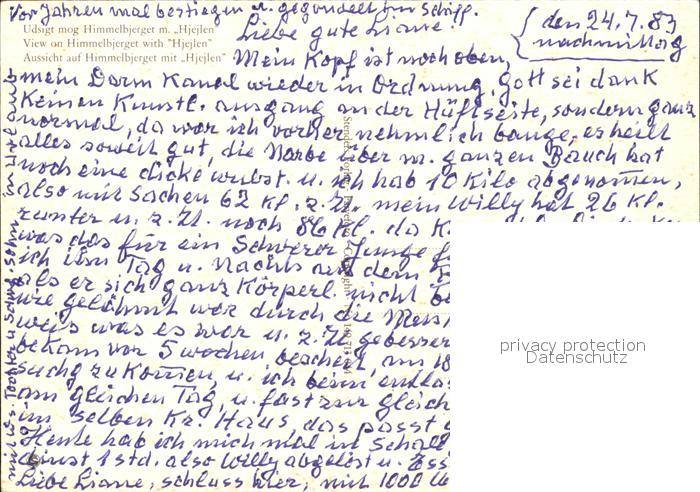 Vor Jahren mal bestiegen u. gegondelt im Schiff.
Udsigt mog Himmelbjerget m. „Hjejlen"
View on Himmelbjerget with "Hjejlen"
Aussicht auf Himmelbjerget mit „Hjejlen"
den 24.7.83
nachmittag
Liebe gute Liane!
Mein Kopf ist noch oben,
mein Darm Kanal wieder in Ordnung, Gott sei dank
Keinen Kunstl. ausgang an der Hüftseite, sondern ganz
normal, da war ich vorher nehmlich bange, es heilt
alles soweit gut, die Narbe über m. ganzen Bauch hat
noch eine dicke wulst. u. ich hab 10 Kilo abgenommen,
also mit Sachen 62 Kl. z. Zt. mein Willy hat 26 Kl.
runter u. z. Zt. noch 86 Kl. da K
was das für ein Schwerer Junge
ich ihn Tag u. Nachts auf dem
als er sich ganz Körperl. nicht be
wie gelähmt war durch die
weis was es war u. z. Zt. gebesser
bekam vor 5 wochen bescheid, am 18
zu kommen, u. ich beim entla
am gleichen Tag, u. fast zur gleich
im selben Kr. Haus, das passt
Heute hab ich mich mal in
1 std. also Willy abgelöst u.
Liebe Liane, schluss hier, mit 1000 
privacy protection
Datenschutz